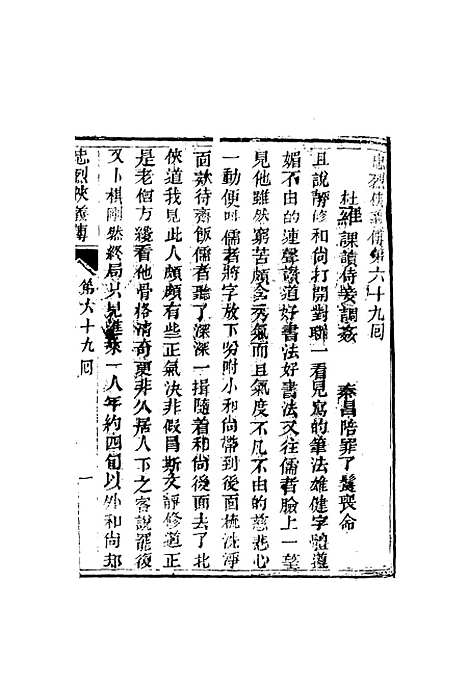 忠烈俠義傳第六十九回
杜雍課讀侍妾調姦　秦昌陪罪丫鬟喪命
且說靜修和尚打開對聯一看見寫的筆法雄健字體遒
媚不由的連聲讚道好書法好書法又往儒者臉上一望
見他雖然窮苦頗含秀氣而且氣度不凡不由的慈悲心
一動便叫儒者將字放下吩咐小和尚帶到後面梳洗淨
面款待齋飯儒者聽了深深一揖隨着和尚後面去了北
俠道我見此人頗頗有些正氣決非假冒斯文靜修道正
是老僧方纔看他骨格清奇更非久居人下之客說罷復
又下棋剛然終局只見進來一人年約四旬以外和尚却
忠烈俠義傳
第六十九回
一